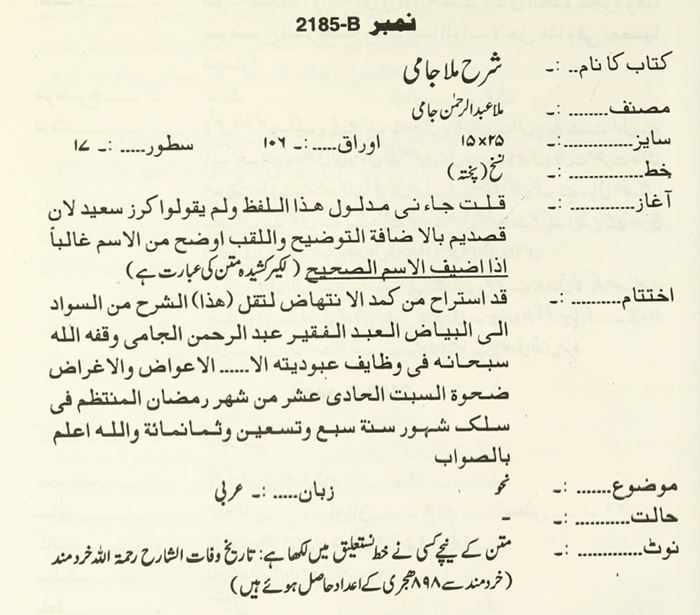 نمبر 2185-B
کتاب کا نام.. :۔ شرح ملا جامی
مصنف......... :۔ ملا عبدالرحمٰن جامی
سایز........... :۔ ۲۵×۱۵ اوراق..... :۔ ۱۰۶ سطور..... :۔ ۱۷
خط............ :۔ نسخ (پختہ)
آغاز........... :۔ قلت جاءنی مدلول هذا اللفظ ولم يقولوا كرز سعيد لان
قصديم بالا ضافة التوضيح واللقب اوضح من الاسم غالباً
اذا اضيف الاسم الصحيح (لکیر کشیدہ متن کی عبارت ہے)
اختتام......... :۔ قد استراح من كمد الا نتهاض لنقل (هذا) الشرح من السواد
الى البياض العبد الفقير عبد الرحمن الجامى وقفه الله
سبحانه فى وظايف عبوديته الا...... الاعواض والاغراض
ضحوة السبت الحادى عشر من شهر رمضان المنتظم فى
سلك شهور سنة سبع وتسعين وثمانمائة والله اعلم
بالصواب
موضوع....... :۔ نحو زبان..... :۔ عربی
حالت......... :۔ ۔
نوٹ............ :۔ متن کے نیچے کسی نے خط نستعلیق میں لکھا ہے: تاریخ وفات الشارح رحمۃ اللہ خردمند
(خردمند سے ۸۹۸ ھجری کے اعداد حاصل ہوئے ہیں)